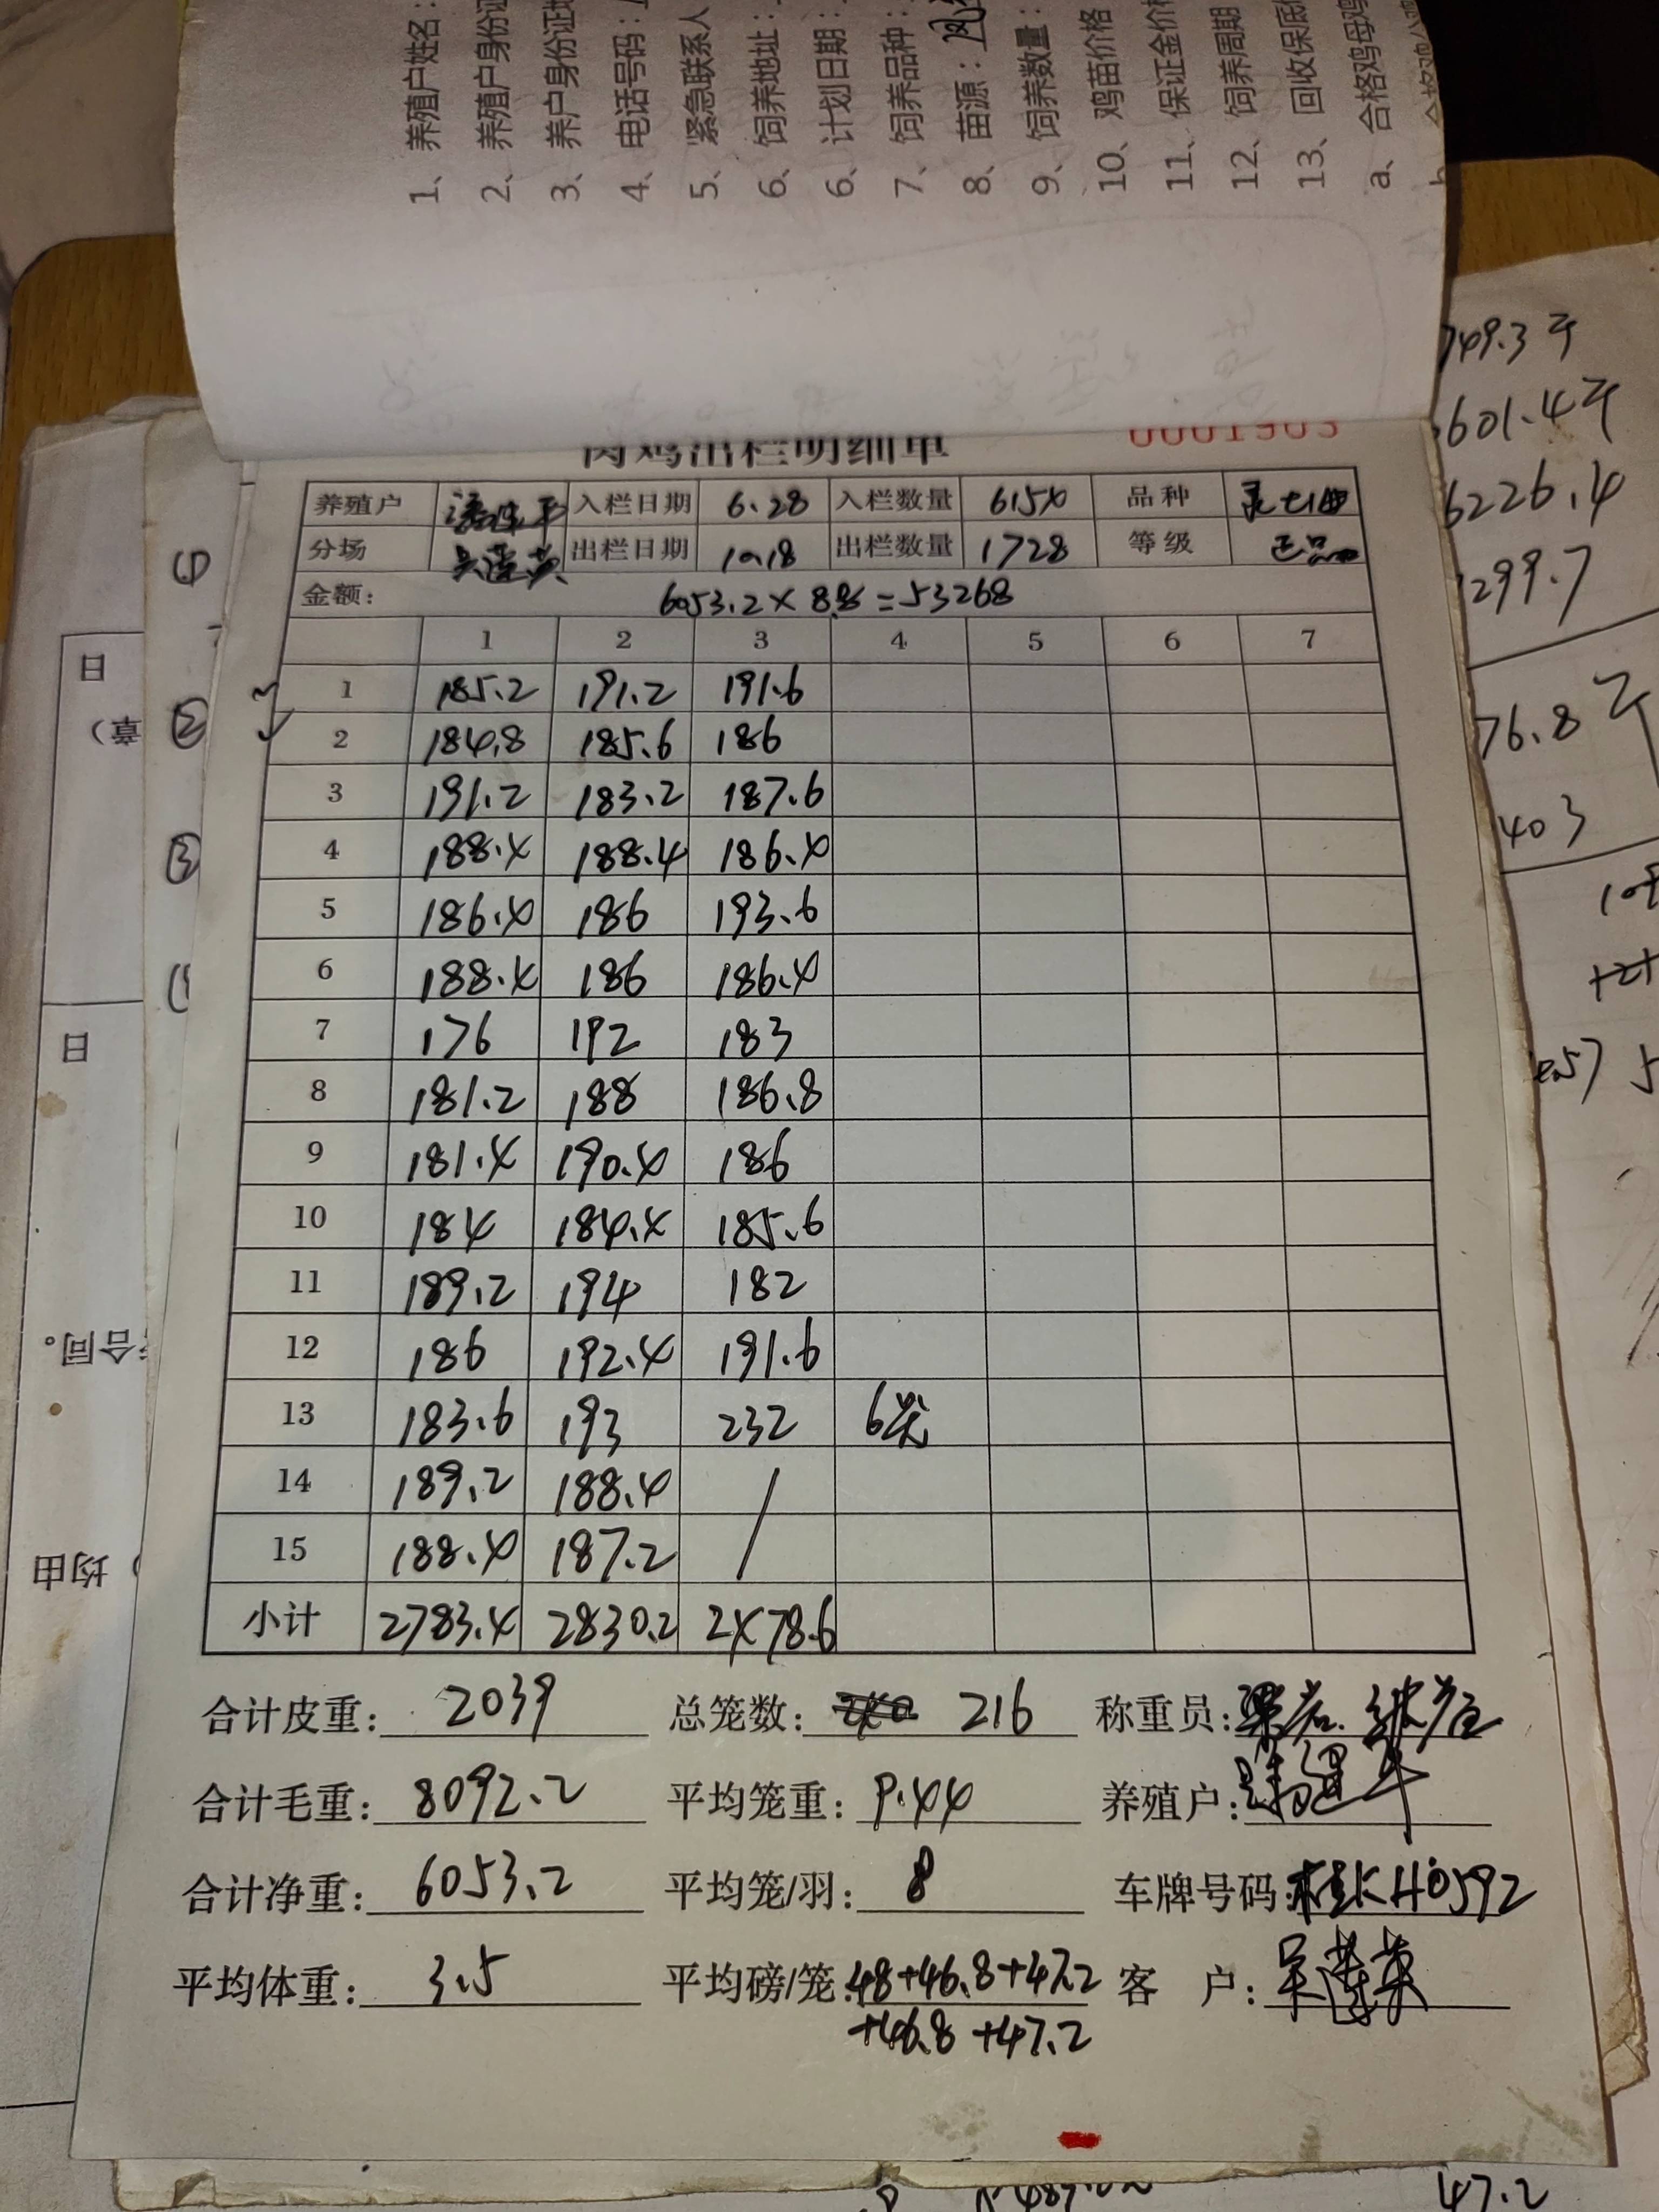 1、养殖户姓名：
2、养殖户身份证
3、养户身份证地
4、电话号码：
5、紧急联系人
6、饲养地址：
6、计划日期：
7、饲养品种：
8、苗源：
9、饲养数量：
10、鸡苗价格
11、保证金价格
12、饲养周期
13、回收保底价
a、合格鸡母鸡
肉鸡出栏明细单 0001903
养殖户 入栏日期 6.28 入栏数量 6154 品种
分场 吴莲英 出栏日期 10.18 出栏数量 1728 等级 正品
金额： 6053.2×8.8=53268
1 2 3 4 5 6 7
1 185.2 191.2 191.6
2 184.8 185.6 186
3 191.2 183.2 187.6
4 188.4 188.4 186.4
5 186.4 186 193.6
6 188.4 186 186.4
7 176 192 183
8 181.2 188 186.8
9 181.4 190.4 186
10 184 184.4 185.6
11 189.2 194 182
12 186 192.4 191.6
13 183.6 193 232 6笼
14 189.2 188.4 /
15 188.4 187.2 /
小计 2783.4 2830.2 2478.6
合计皮重： 2039 总笼数： 216 称重员：
合计毛重： 8092.2 平均笼重： 9.44 养殖户：
合计净重： 6053.2 平均笼/羽： 8 车牌号码： 桂KH0592
平均体重： 3.5 平均磅/笼： 48+46.8+47.2 客 户： 吴莲英
+46.8 +47.2
749.3 斤
601.4斤
6226.4
299.7
76.8
403
日
章）
日
合同。
均由
47.2